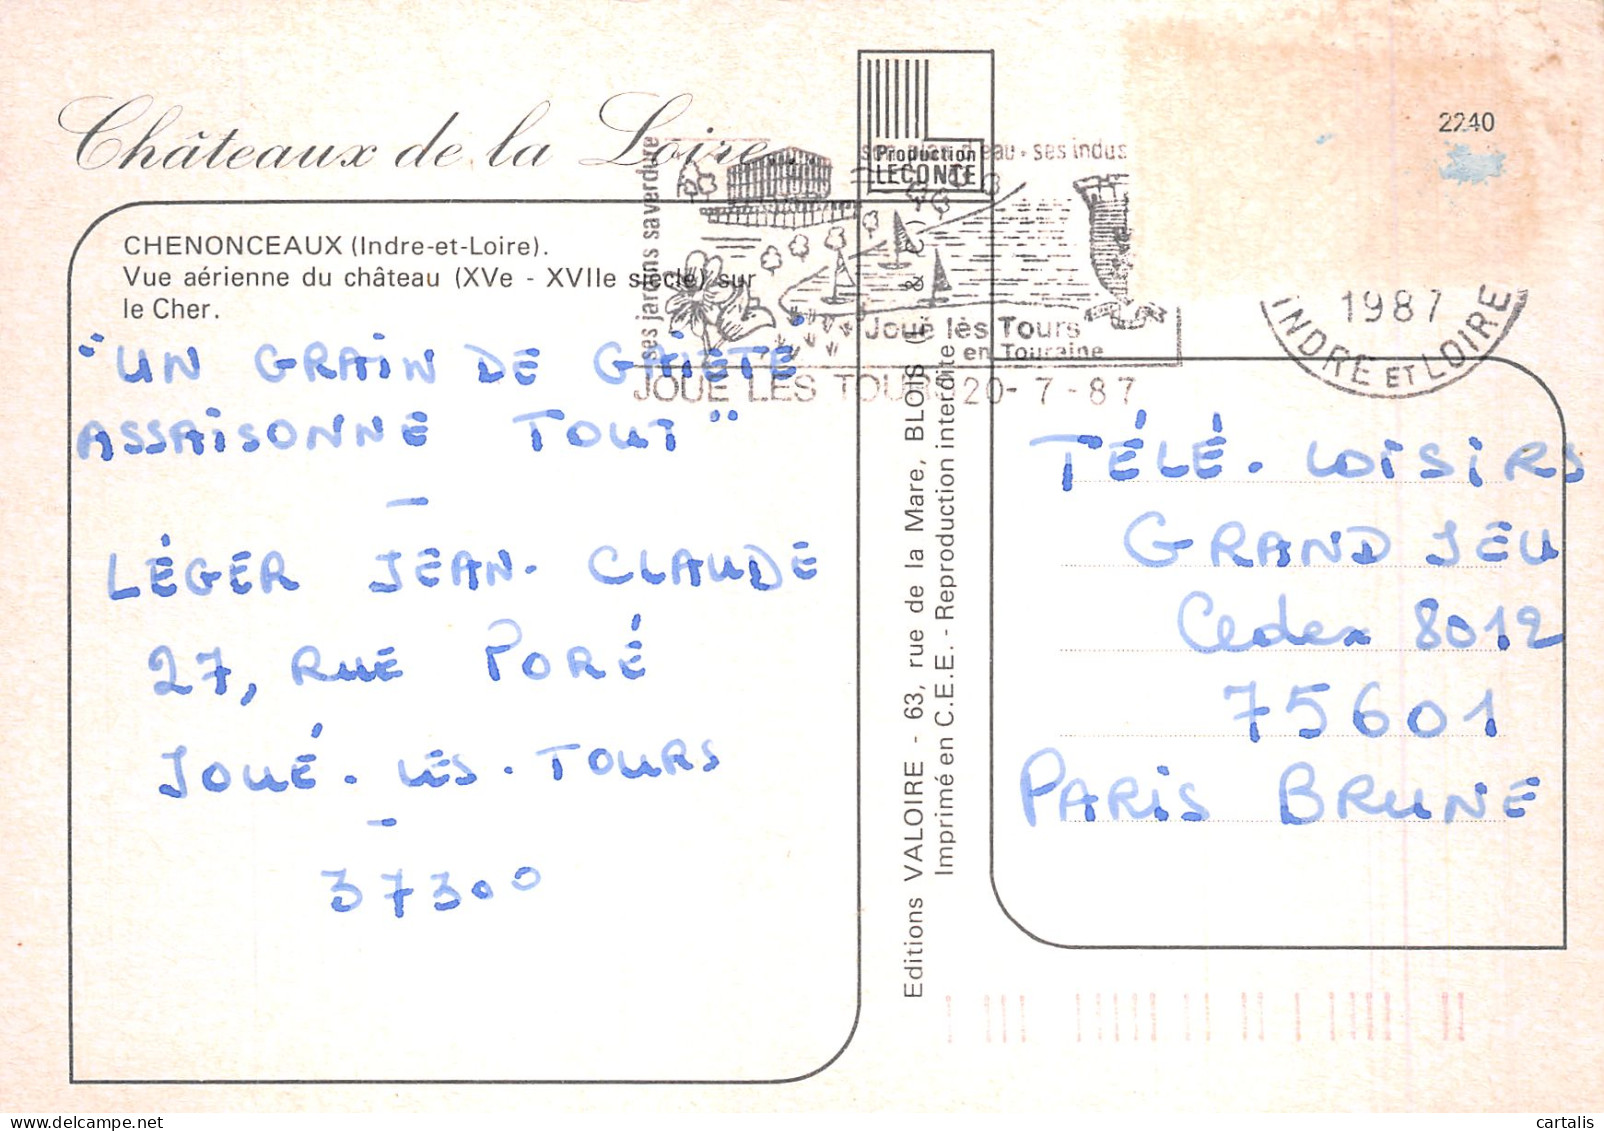 Châteaux de la Loire
CHENONCEAUX (Indre-et-Loire).
Vue aérienne du château (XVe - XVIIe siècle) sur
le Cher.
"UN GRAIN DE GAIETÉ
ASSAISONNE TOUT"
-
LÉGER JEAN-CLAUDE
27, RUE PORÉ
JOUÉ-LES-TOURS
-
37300
Production
LECONTE
ses jardins sa verdure
eau - ses indus
Joué lès Tours
en Touraine
JOUE LES TOURS 20-7-87
Editions VALOIRE - 63, rue de la Mare, BLOIS
Imprimé en C.E.E. - Reproduction interdite
2240
1987
INDRE ET LOIRE
TÉLÉ-LOISIRS
GRAND JEU
Cedex 8012
75601
PARIS BRUNE
cartalis